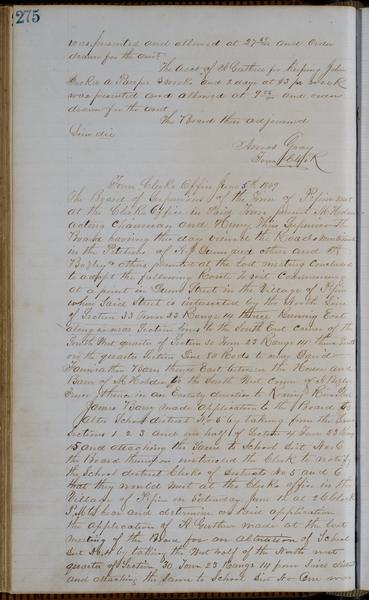 275
was presented and allowed at 27 and order
drawn for the amt
The acct of A Guthrie for keeping John
a Pauper 3 weeks and 2 days at $3 per week
was presented and allowed at 9 and order
drawn for the amt
The Board then adjourned
Sine die
Amos Gray
Town Clerk
Town Clerks Office June 5th 1869
The Board of Supervisors of the Town of Pepin met
at the Clerks Office in Said Town present A Holden
acting Chairman and Henry Supervisor the
Board having this day viewed the Roads mentioned
in the Petitions of A J and others and
& others presented at last meeting concluded
to adopt the following Route to wit Commencing
at a point in Street in the Village of Pepin
where Said Street is intersected by the North Line
of Section 33 Town 23 Range 14 thence Running East
along or near Section line to the South East corner of the
South West quarter of Section 30 Town 23 Range 14 thence South
on the quarter Section Line 80 Rods to near David
Barn thence East between the House and
Barn of A Holden to the South West Corner of
thence in an Easterly direction to
James Barry made application to the Board to
alter School district No 5 by taking from the Same
Sections 1 2 3 and one half of Section 4 Town 23
15 and attaching the Same to School Dist No 6
the Board therefore instructed the Clerk to notify
the School district Clerks of Districts No 5 and 6
that they would meet at the Clerks office in the
Village of Pepin on Saturday June 12 at 2 O Clock
P.M. to hear and determine on Said application
the application of A Guthrie made at the last
meeting of the Board for an alteration of School
Dist No 4 by taking the West half of the North West
quarter of Section 30 Town 23 Range 14 from Said district
and attaching the Same to School Dist No One was